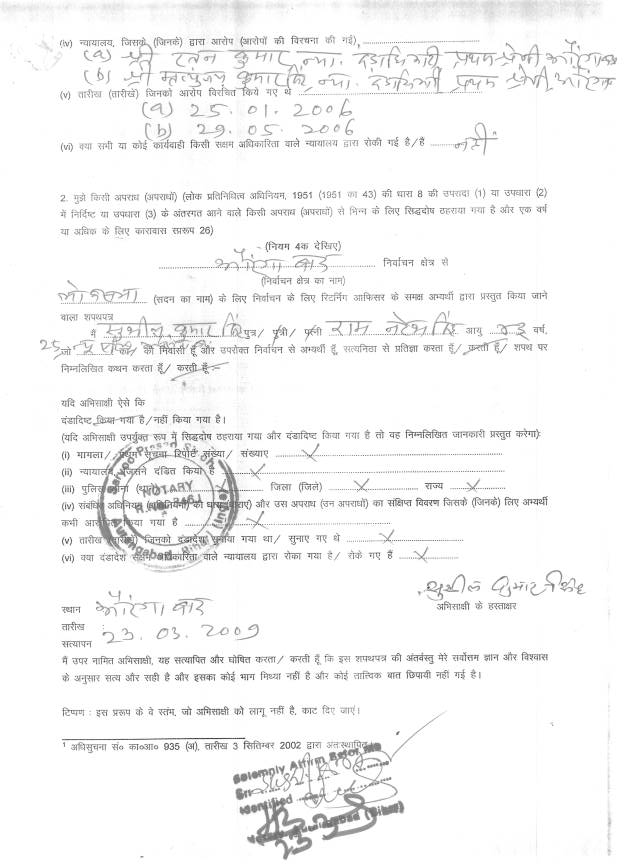 (iv) न्यायालय, जिसके (जिनके) द्वारा आरोप (आरोपों की विरचना की गई),
(a) श्री रतन कुमार, न्या. दंडाधिकारी प्रथम श्रेणी औरंगाबाद
(b) श्री मृत्युंजय कुमार सिंह, न्या. दंडाधिकारी प्रथम श्रेणी, औरंगाबाद
(v) तारीख (तारीखें) जिनको आरोप विरचित किये गए थे
(a) 25.01.2006
(b) 29.05.2006
(vi) क्या सभी या कोई कार्यवाही किसी सक्षम अधिकारिता वाले न्यायालय द्वारा रोकी गई है/हैं नहीं
2. मुझे किसी अपराध (अपराधों) (लोक प्रतिनिधित्व अधिनियम, 1951 (1951 का 43) की धारा 8 की उपराधा (1) या उपधारा (2)
में निर्दिष्ट या उपधारा (3) के अंतरगत आने वाले किसी अपराध (अपराधों) से भिन्न के लिए सिद्धदोष ठहराया गया है और एक वर्ष
या अधिक के लिए कारावास सप्ररूप 26)
(नियम 4क देखिए)
औरंगाबाद निर्वाचन क्षेत्र से
(निर्वाचन क्षेत्र का नाम)
लोकसभा (सदन का नाम) के लिए निर्वाचन के लिए रिटर्निंग आफिसर के समक्ष अभ्यर्थी द्वारा प्रस्तुत किया जाने
वाला शपथपत्र
मैं सुशील कुमार सिंह पुत्र/ पुत्री/ पत्नी राम नरेश सिंह आयु वर्ष,
जो का निवासी हूँ और उपरोक्त निर्वाचन से अभ्यर्थी हूँ, सत्यनिठा से प्रतिज्ञा करता हूँ/ करती हूँ/ शपथ पर
निम्नलिखित कथन करता हूँ/ करती हूँ:-
यदि अभिसाक्षी ऐसे कि
दंडादिष्ट किया गया है/नहीं किया गया है।
(यदि अभिसाक्षी उपर्युक्त रूप में सिद्धदोष ठहराया गया और दंडादिष्ट किया गया है तो वह निम्नलिखित जानकारी प्रस्तुत करेगा):
(i) मामला/ प्रथम सूचना रिपोर्ट संख्या/ संख्याएं X
(ii) न्यायालय जिसने दंडित किया है X
(iii) पुलिस थाना (थाने) X जिला (जिले) X राज्य X
(iv) संबंधित अधिनियम (अधिनियमों) की धारा (धाराएं) और उस अपराध (उन अपराधों) का संक्षिप्त विवरण जिसके (जिनके) लिए अभ्यर्थी
कभी आरोपित किया गया है X
(v) तारीख (तारीखें) जिनको दंडादेश सुनाया गया था/ सुनाए गए थे X
(vi) क्या दंडादेश सक्षम अधिकारिता वाले न्यायालय द्वारा रोका गया है/ रोके गए हैं X
सुशील कुमार सिंह
अभिसाक्षी के हस्ताक्षर
स्थान औरंगाबाद
तारीख : 23.03.2009
सत्यापन
मैं उपर नामित अभिसाक्षी, यह सत्यापित और घोषित करता/ करती हूँ कि इस शपथपत्र की अंतर्वस्तु मेरे सर्वोत्तम ज्ञान और विश्वास
के अनुसार सत्य और सही है और इसका कोई भाग मिथ्या नहीं है और कोई तात्त्विक बात छिपायी नहीं गई है।
टिप्पण : इस प्ररूप के वे स्तंभ, जो अभिसाक्षी को लागू नहीं है, काट दिए जाएं।
1 अधिसूचना सं० का०आ० 935 (अ), तारीख 3 सितिम्बर 2002 द्वारा अंतःस्थापित।
NOTARY
Solemnly Affirm Befor me
Sri
Identified
Notary Aurangabad (Bihar)